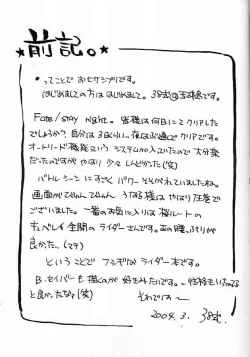 ★前記。★
・ってことで おヒサシブリです。
はじめましての方は はじめまして。 38式
Fate/stay night. 皆様は何日にてクリアした
でしょうか? 自分は3日くらい、夜はぶっ通しでクリアです。
オートリード機能という システムが入っていたので 大分楽
だったのですが やはり 少々 しんどかった(笑)
バトルシーンに すごく パワー そそがれていましたね。
画面が ぐりんぐりん うごく様は やはり圧巻で
ございました。 一番の お気に入りは 桜ルートの
全開の ライダーさんです。 あの腰
良かった。(マテ)
ということで フシギな ライダー本です。
B.セイバーも 描くのが 好きみたいです。
と良かったなぁ(笑)
それでは〜
2004. 3. 38式.